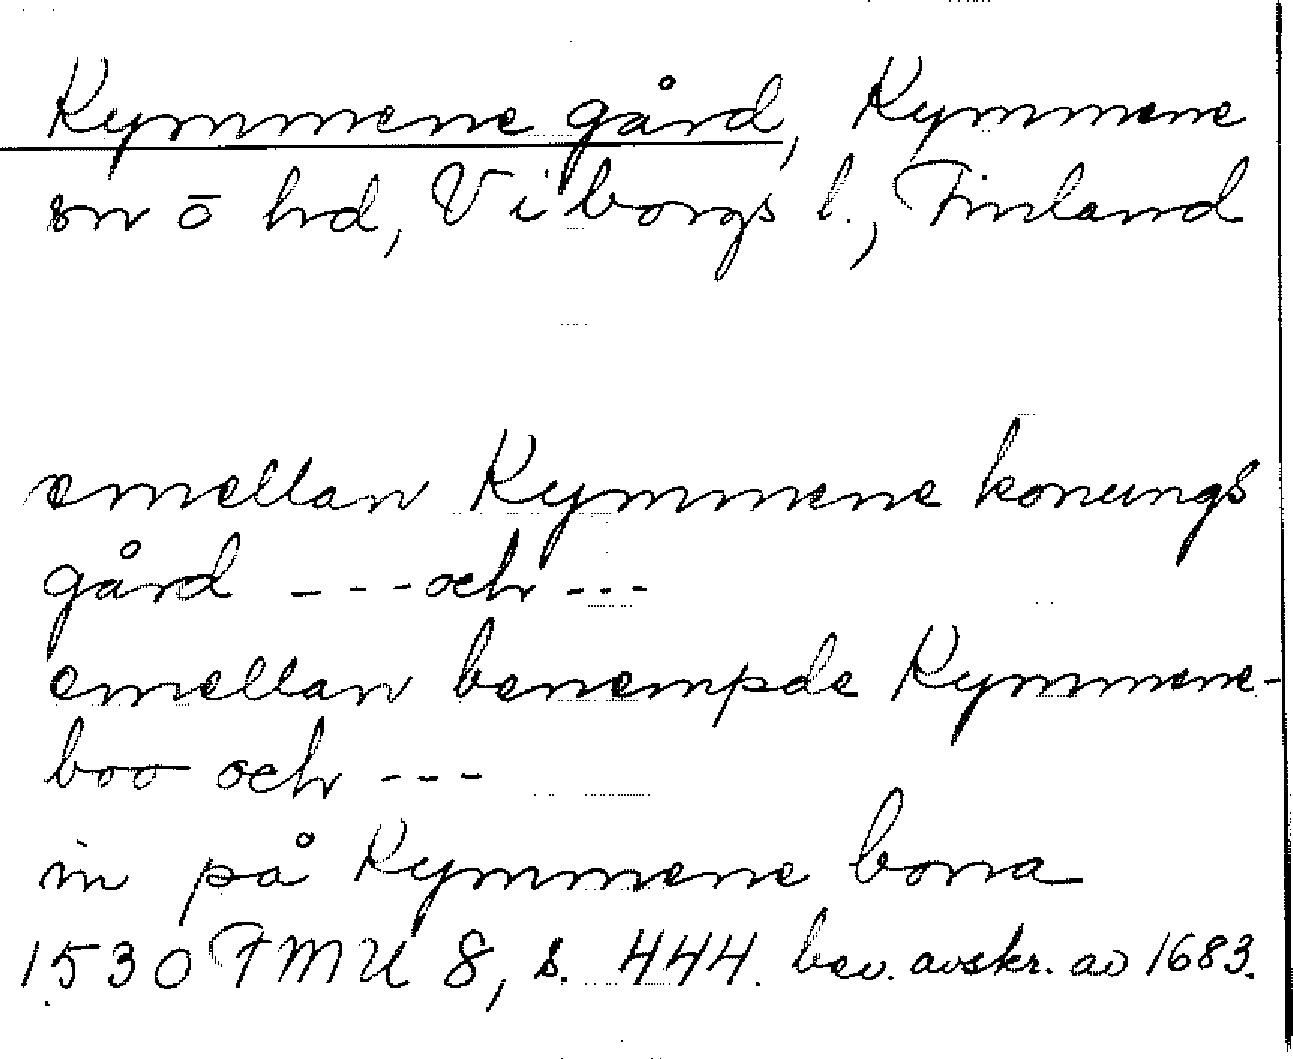 Kymmene gård, Kymmene
sn o hd, Viborgs l., Finland
emellan Kymmene konungs
gård --- och ---
emellan benempde Kymmene-
boo och ---
in på Kymmene bona
1530 FMU 8, s. 444. bev. avskr. av 1683.